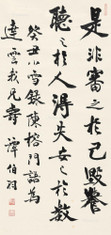 是非審之於己毀譽
聽之於人得失安之於數
癸丑小雪錄陳榕門語為
達雲我兄壽 譚伯羽